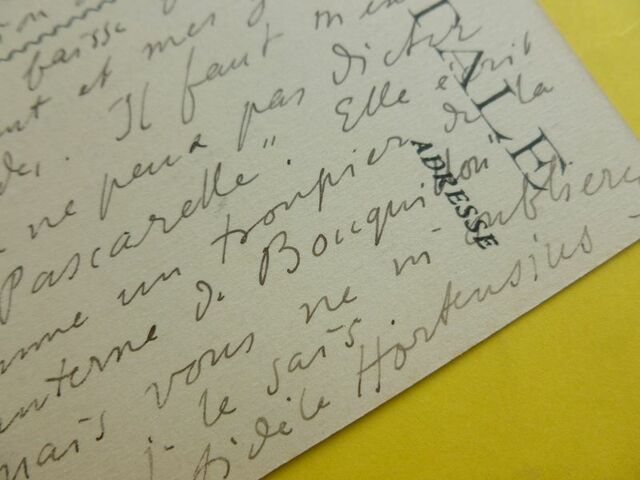 baisse
et mes
Il faut m'en
ne peux pas dicter
Pascarelle". Elle écrit
un troupier de la
de Bouquidon
mais vous ne m'oublierez
je le sais.
fidèle Hortensius
TALE
ADRESSE